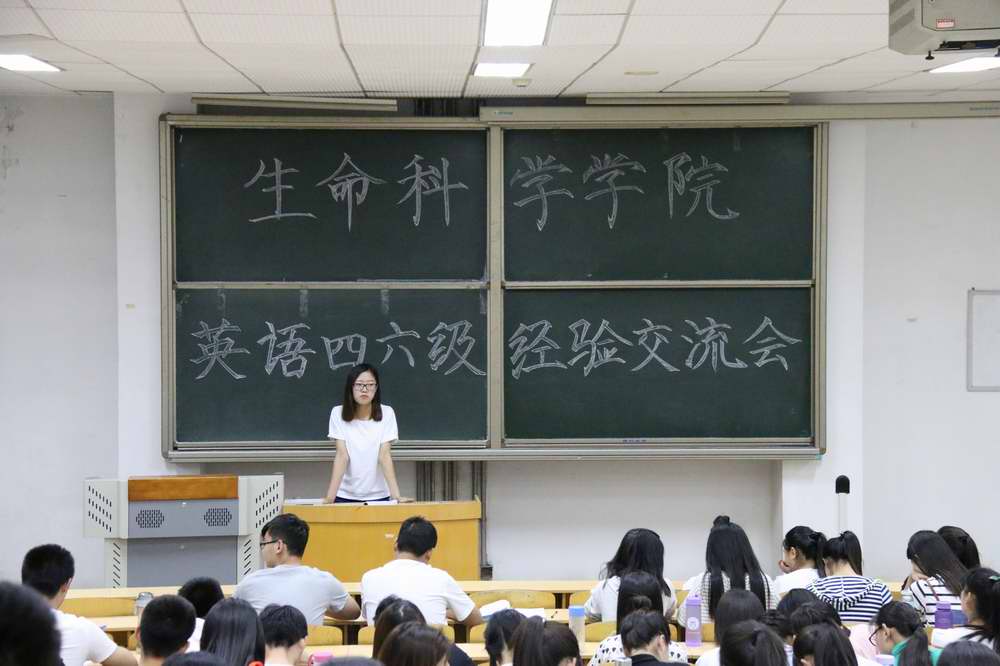 生命科学学院
英语四六级经验交流会